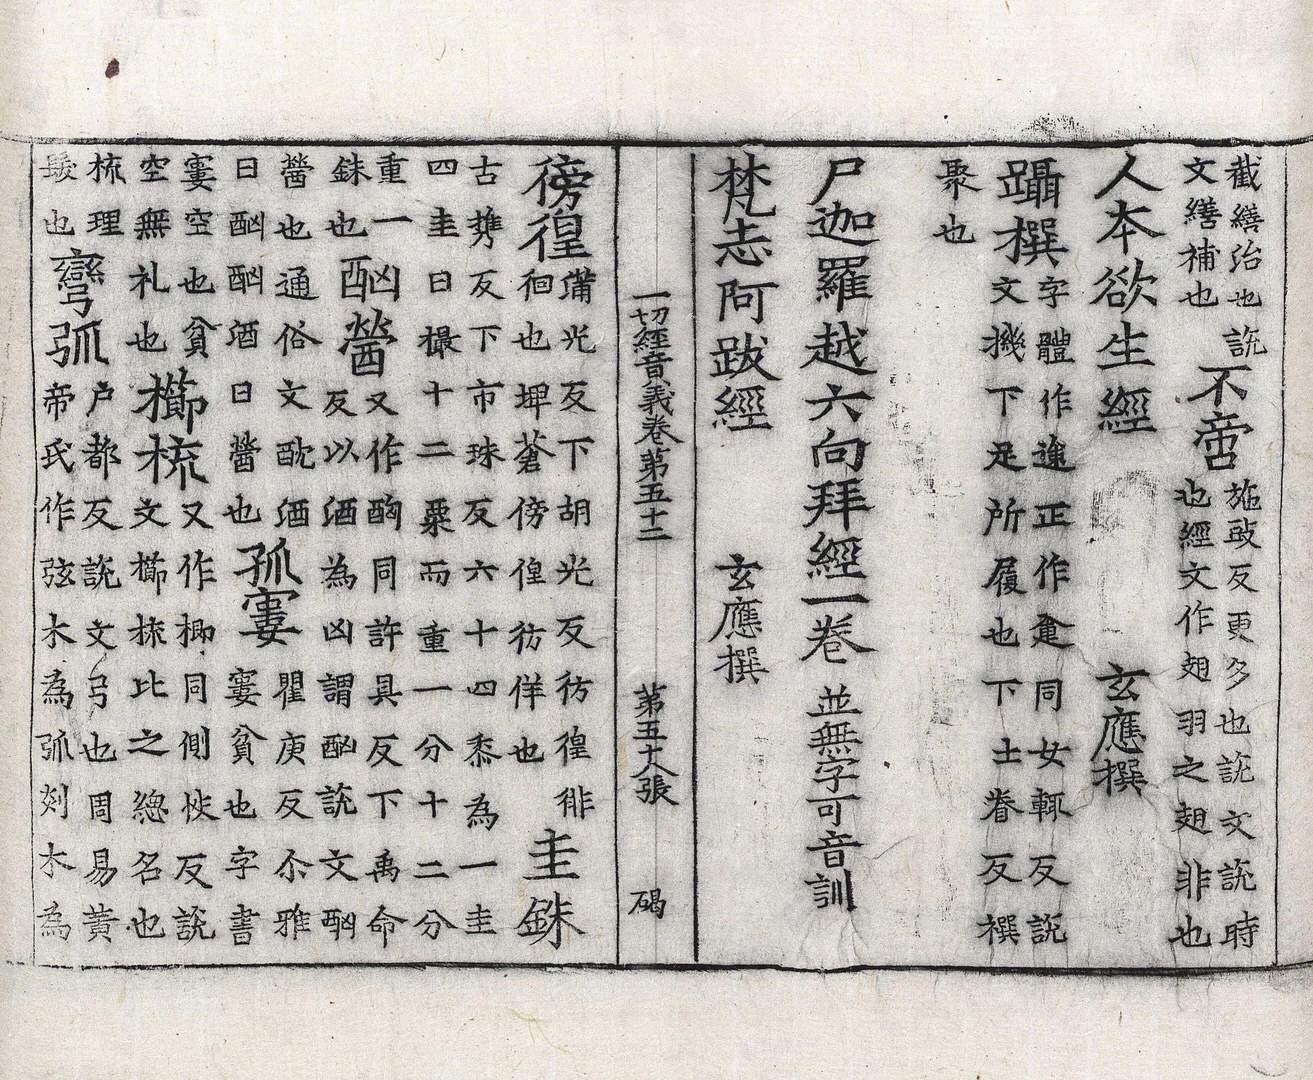 截繕治也說文繕補也不啻施豉反更多也說文說時也經文作翅羽之翅非也
人本欲生經 玄應撰
躡撰字體作正作同女輒反說文機下足所履也下士眷反撰
聚也
尸迦羅越六向拜經一卷 並無字可音訓
梵志阿跋經 玄應撰
一切經音義卷第五十二 第五十八張 碣
徬徨蒲光反下胡光反彷徨徘徊也埤蒼傍徨彷徉也圭銖
古攜反下市珠反六十四黍為一圭四圭曰撮十二粟而重一分十二分
重一銖也酗醟又作酗同許具反下禹命反以酒為凶謂酗說文酗
醟也通俗文酖酒曰酗酗酒曰醟也孤窶瞿庾反尒雅窶貧也字書
窶空也貧空無礼也櫛梳又作楖同側恢反說文櫛梳比之總名也
梳理髮也彎弧戶都反說文弓也周易黃帝氏作弦木為弧剡木為